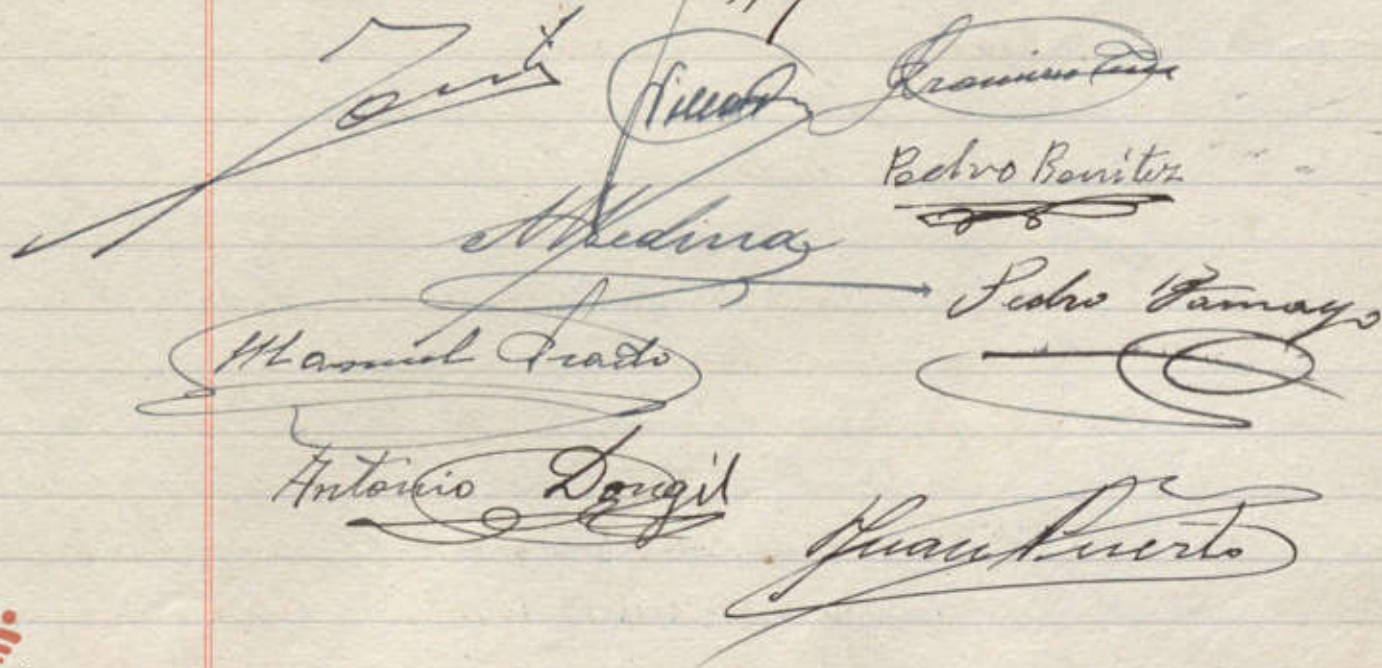 Francisco
Pedro Benítez
Medina
Pedro Tamayo
Manuel Prado
Antonio Dongil
Juan Puerto